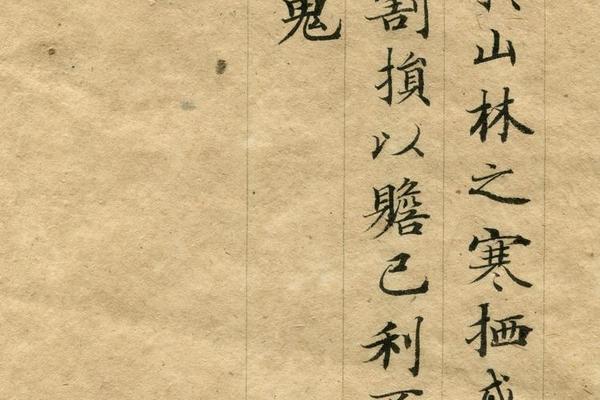 山林之寒栖或
割損以贍己利而
鬼